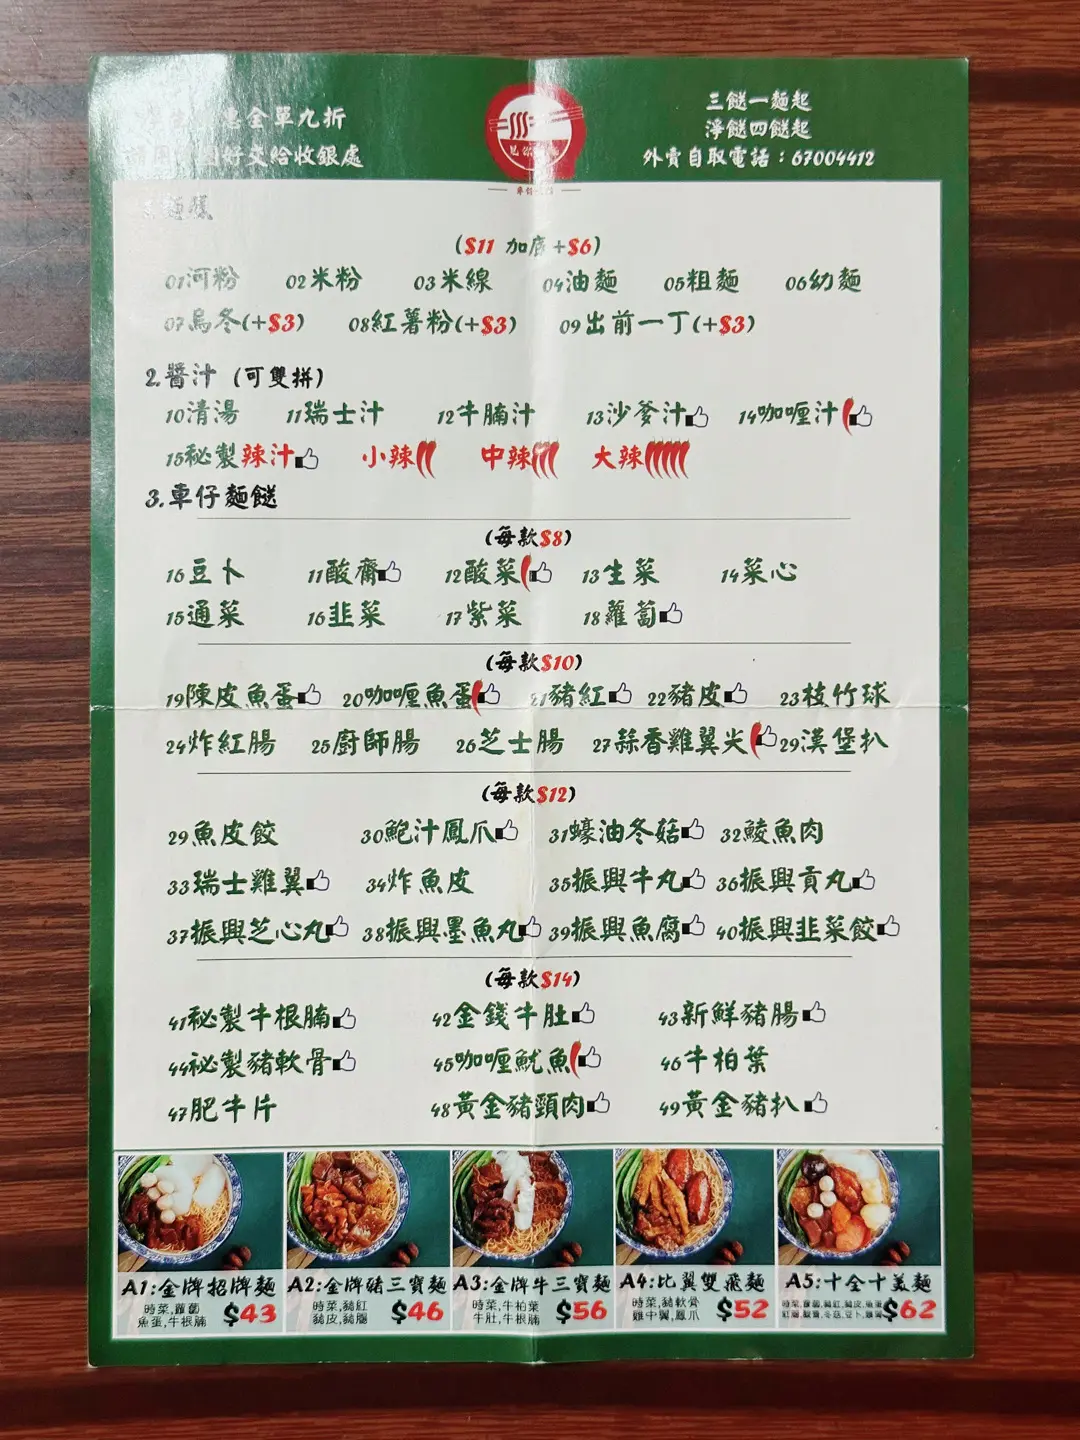 惠全單九折
好交給收銀處
三餸一麵起
淨餸四餸起
外賣自取電話：67004412
麵
($11 加底+$6)
01河粉 02米粉 03米線 04油麵 05粗麵 06幼麵
07烏冬(+$3) 08紅薯粉(+$3) 09出前一丁(+$3)
2.醬汁 (可雙拼)
10清湯 11瑞士汁 12牛腩汁 13沙爹汁 14咖喱汁
15秘製辣汁 小辣 中辣 大辣
3.車仔麵餸
(每款$8)
16豆卜 11酸齋 12酸菜 13生菜 14菜心
15通菜 16韭菜 17紫菜 18蘿蔔
(每款$10)
19陳皮魚蛋 20咖喱魚蛋 21豬紅 22豬皮 23枝竹球
24炸紅腸 25廚師腸 26芝士腸 27蒜香雞翼尖 29漢堡扒
(每款$12)
29魚皮餃 30鮑汁鳳爪 31蠔油冬菇 32鯪魚肉
33瑞士雞翼 34炸魚皮 35振興牛丸 36振興貢丸
37振興芝心丸 38振興墨魚丸 39振興魚腐 40振興韭菜餃
(每款$14)
41秘製牛根腩 42金錢牛肚 43新鮮豬腸
44秘製豬軟骨 45咖喱魷魚 46牛柏葉
47肥牛片 48黃金豬頸肉 49黃金豬扒
A1:金牌招牌麵
時菜,蘿蔔
魚蛋,牛根腩
$43
A2:金牌豬三寶麵
時菜,豬紅
豬皮,豬腸
$46
A3:金牌牛三寶麵
時菜,牛柏葉
牛肚,牛根腩
$56
A4:比翼雙飛麵
時菜,豬軟骨
雞中翼,鳳爪
$52
A5:十全十美麵
$62